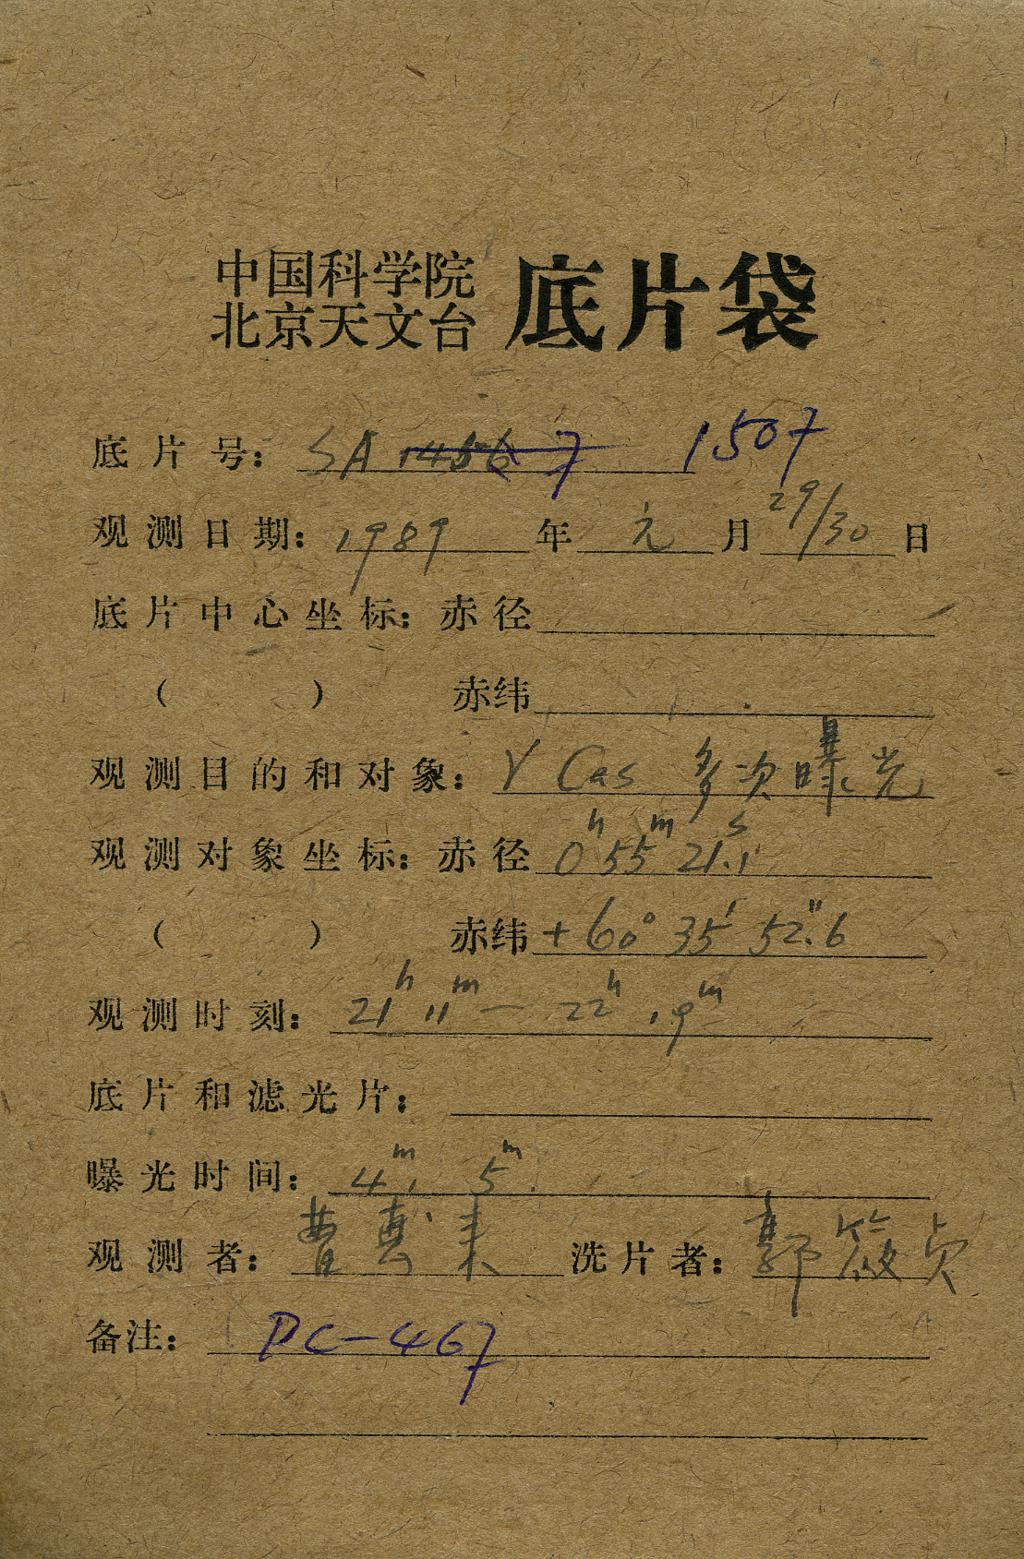 中国科学院
北京天文台 底片袋
底片号: SA 1486 7 1507
观测日期: 1989 年 元 月 29/30 日
底片中心坐标: 赤径
( ) 赤纬
观测目的和对象: γ Cas 多次曝光
观测对象坐标: 赤径 0h 55m 21.1s
( ) 赤纬 +60° 35′ 52.″6
观测时刻: 21h 11m — 22h 19m
底片和滤光片:
曝光时间: 4m, 5m.
观测者: 曹 来 洗片者: 郭筱贞
备注: PC-467